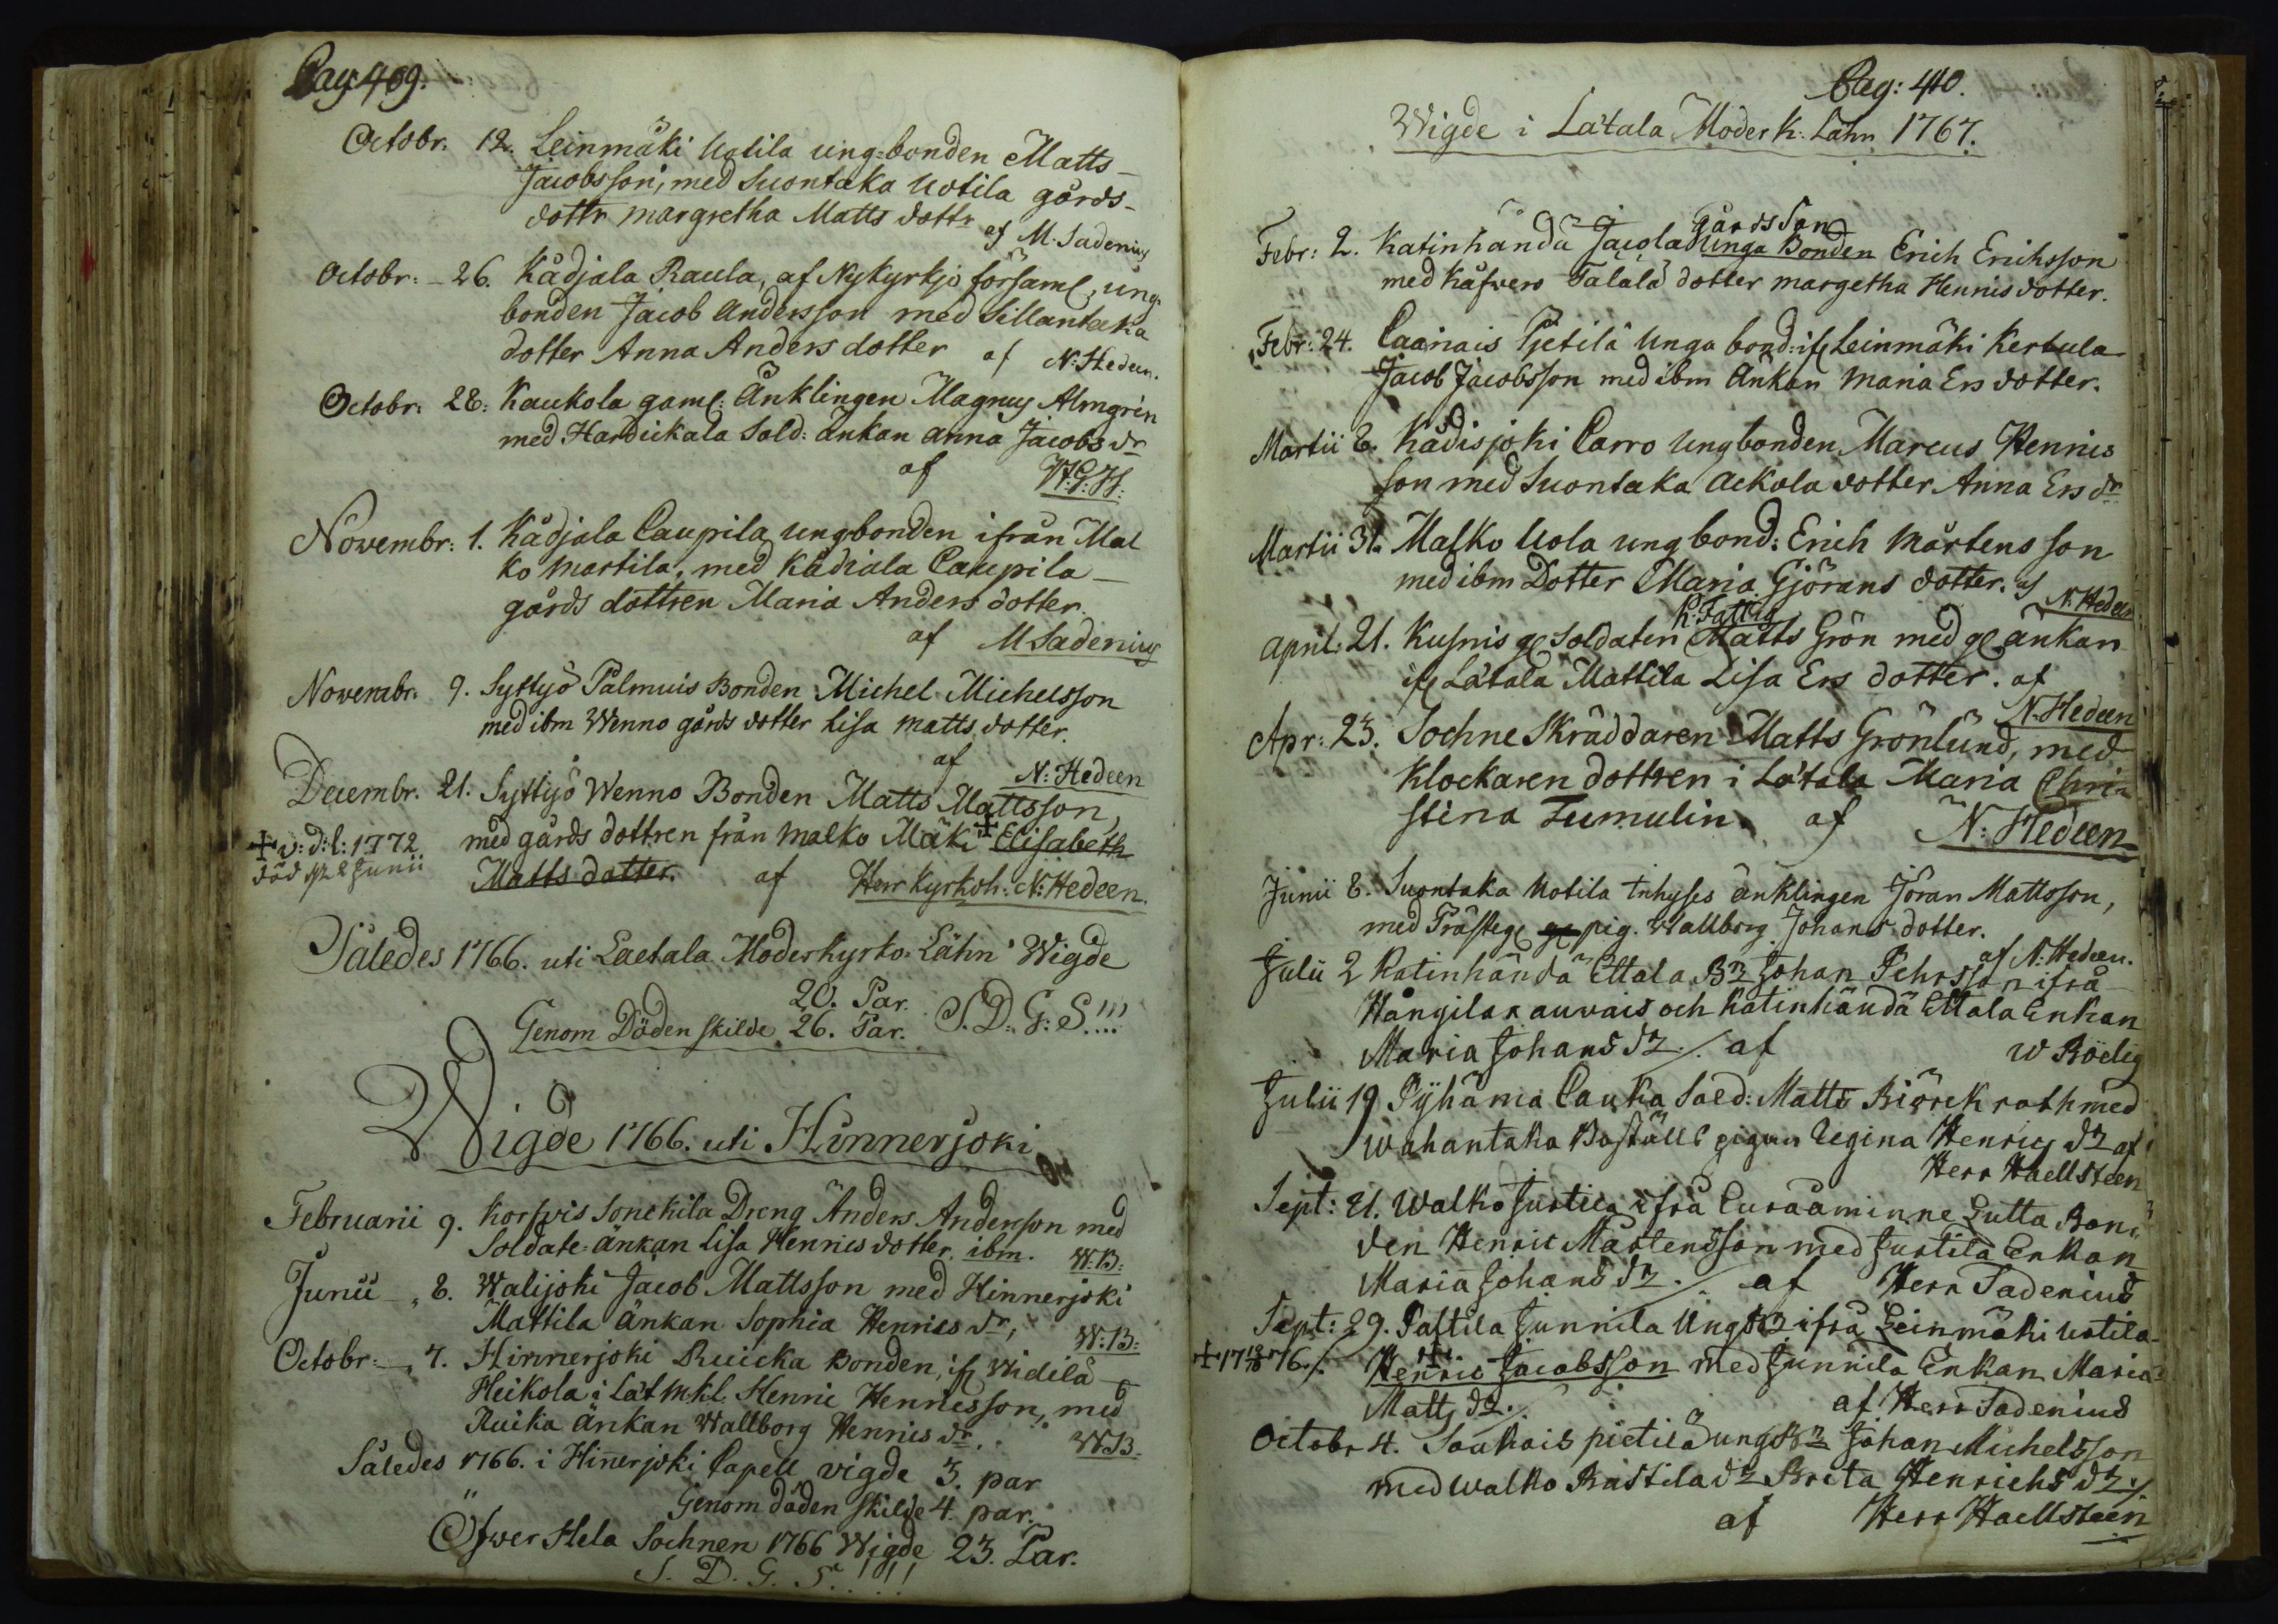 Pag: 409.
Octobr. 12. Leinmäki Uotila ung-bonden Matts
Jacobsson, med Suontaka Uotila gårds-
dottr margretha Matts dottr af M. Sadenius
Octobr: 26. Kådjala Raula, af Nykyrkjo församl, ung-
bonden Jacob Andersson med Sillantaka
dotter Anna Anders dotter af N: Hedeen.
Octobr: 28: Kaukola gaml: Änklingen Magnus Almgrén
med Hardickala Sold: änkan anna Jacobs dr
af W:G:H:
Novembr: 1. Kådjala Caupila ungbonden ifrån Mal
ko Martila, med Kådiala Caupila
gårds dottren Maria Anders dotter.
af M Sadenius
Novembr. 9. Syttyö Palmuis Bonden Michel Michelsson
med ibm Wenno gårds dotter Lisa Matts dotter.
af N: Hedeen
Decembr. 21. Syttyö Wenno Bonden Matts Mattsson,
+ v: d: l: 1772 med gårds dottren från Malko Mäki + Elisabeth
död Junii Matts dotter. af Herr Kyrkoh: N: Hedeen.
Således 1766. uti Laetala Moderkyrko Lähn Wigde
20. Par.
Genom Döden skilde 26. Par. S. D: G: S!!!
Wigde 1766. uti Hinnerjoki
Februarii 9. Korfvis Sonckila Dreng Anders Andersson med
Soldate-änkan Lisa Henrics dotter. ibm. W:B:
Junii 8. Walijoki Jacob Mattsson med Hinnerjoki
Mattila Änkan Sophia Henrics dr, W:B:
Octobr: 7. Hinnerjoki Ruicka Bonden, if Widilä
Heikola i Låt Mkl. Henric Henricsson, med
Ruika änkan Wallborg Henrics dr. WB.
Således 1766. i Hinerjoki Capell vigde 3. par
Genom döden skilde 4. par.
Öfwer Hela Sochnen 1766 Wigde 23. Par.
S. D. G. S..!!!
Pag: 410.
Wigde i Låtala Moder K: Lähn 1767.
gårds Son
Febr: 2. Katinhändä Jacola Unga Bonden Erich Erichsson
med Käfvero Talala dotter margetha Henrics dotter.
Febr: 24. Caanais Pjetilä Unga bond: if Leinmäki Kertula
Jacob Jacobsson med ibm Änkan Maria Ers dotter.
Martii 8. Kådisjoki Carro Ungbonden Marcus Henrics
son med Suontaka Ackola dotter Anna Ers dr
Martii 31. Malko Uola ung bond: Erich Mårtens son
med ibm Dotter Maria Gjörans dotter. af N: Hedeen
K: Fattig
april: 21. Kusnis gl Soldaten Matts Grön med gl änkan
if Låtala Mattila Lisa Ers dotter. af
N. Hedeen
Apr: 23. Sochne Skräddaren Matts Grönlund, med
Klockaren dottren i Låtala Maria Chri-
stina Tumulin af N: Hedeen
Junii 8. Suontaka Uotila Inhyses änklingen Jöran Mattsson,
med Prästeg gl pig. Wallborg Johans dotter.
af N: Hedeen.
Julii 2 Katinhändä Ettala Bn Johan Pehrsson ifrå
Hångilax auvais och Katinhändä Ettala Enkan
Maria Johans dr ./. af W Böelig
Julii 19 Pyhäma Cauka Sold: Matts Biörckroth med
Wahantaka Boställs pigan Regina Henrics dr af
Herr Haellsteen
Sept: 21. Walko Justila ifrå Euraåminne Lutta Bon-
den Henric Mårtensson med Justila Enkan
Maria Johans dr ./. af Herr Sadenius
Sept: 29. Paltila Junnila Ung Bn ifrå Leinmäki Uotila
+ 1776 ./. + Henric Jacobsson med Junnila Enkan Maria
Matts dr ./. af Herr Sadenius
Octobr 4. Soukais pietilä ung Bn Johan Michelsson
med Walko Rastila dr Brita Henrichs dr ./.
af Herr Haellsteen